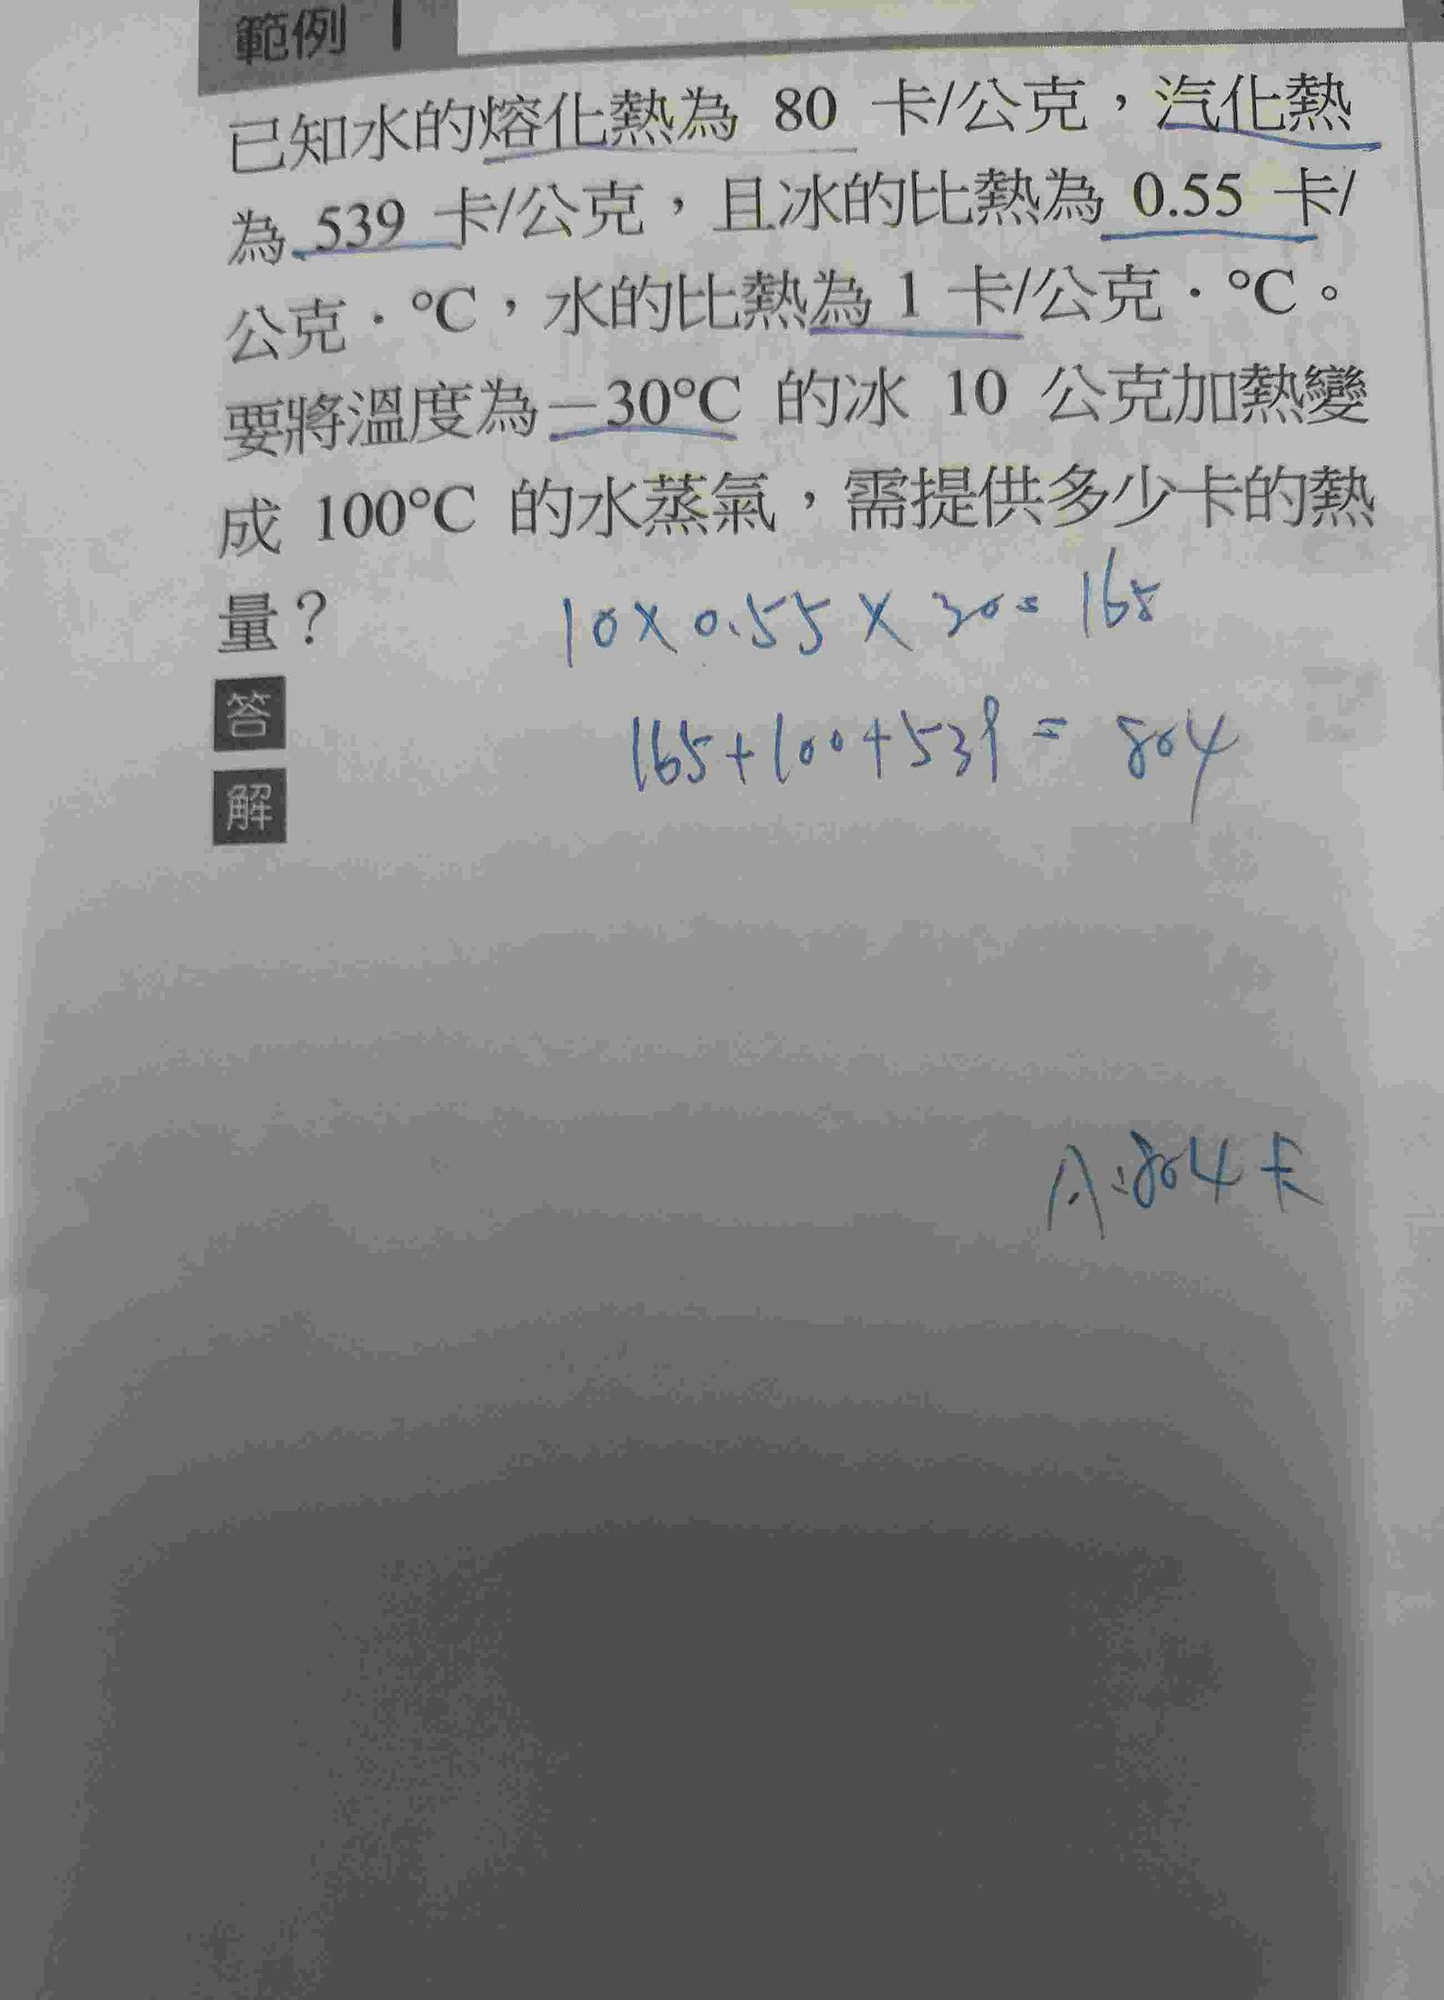 範例 1
已知水的熔化熱為 80 卡/公克，汽化熱
為 539 卡/公克，且冰的比熱為 0.55 卡/
公克．℃，水的比熱為 1 卡/公克．℃。
要將溫度為 –30℃ 的冰 10 公克加熱變
成 100℃ 的水蒸氣，需提供多少卡的熱
量？
10×0.55×30=165
165+100+539=804
答
解
A:804卡